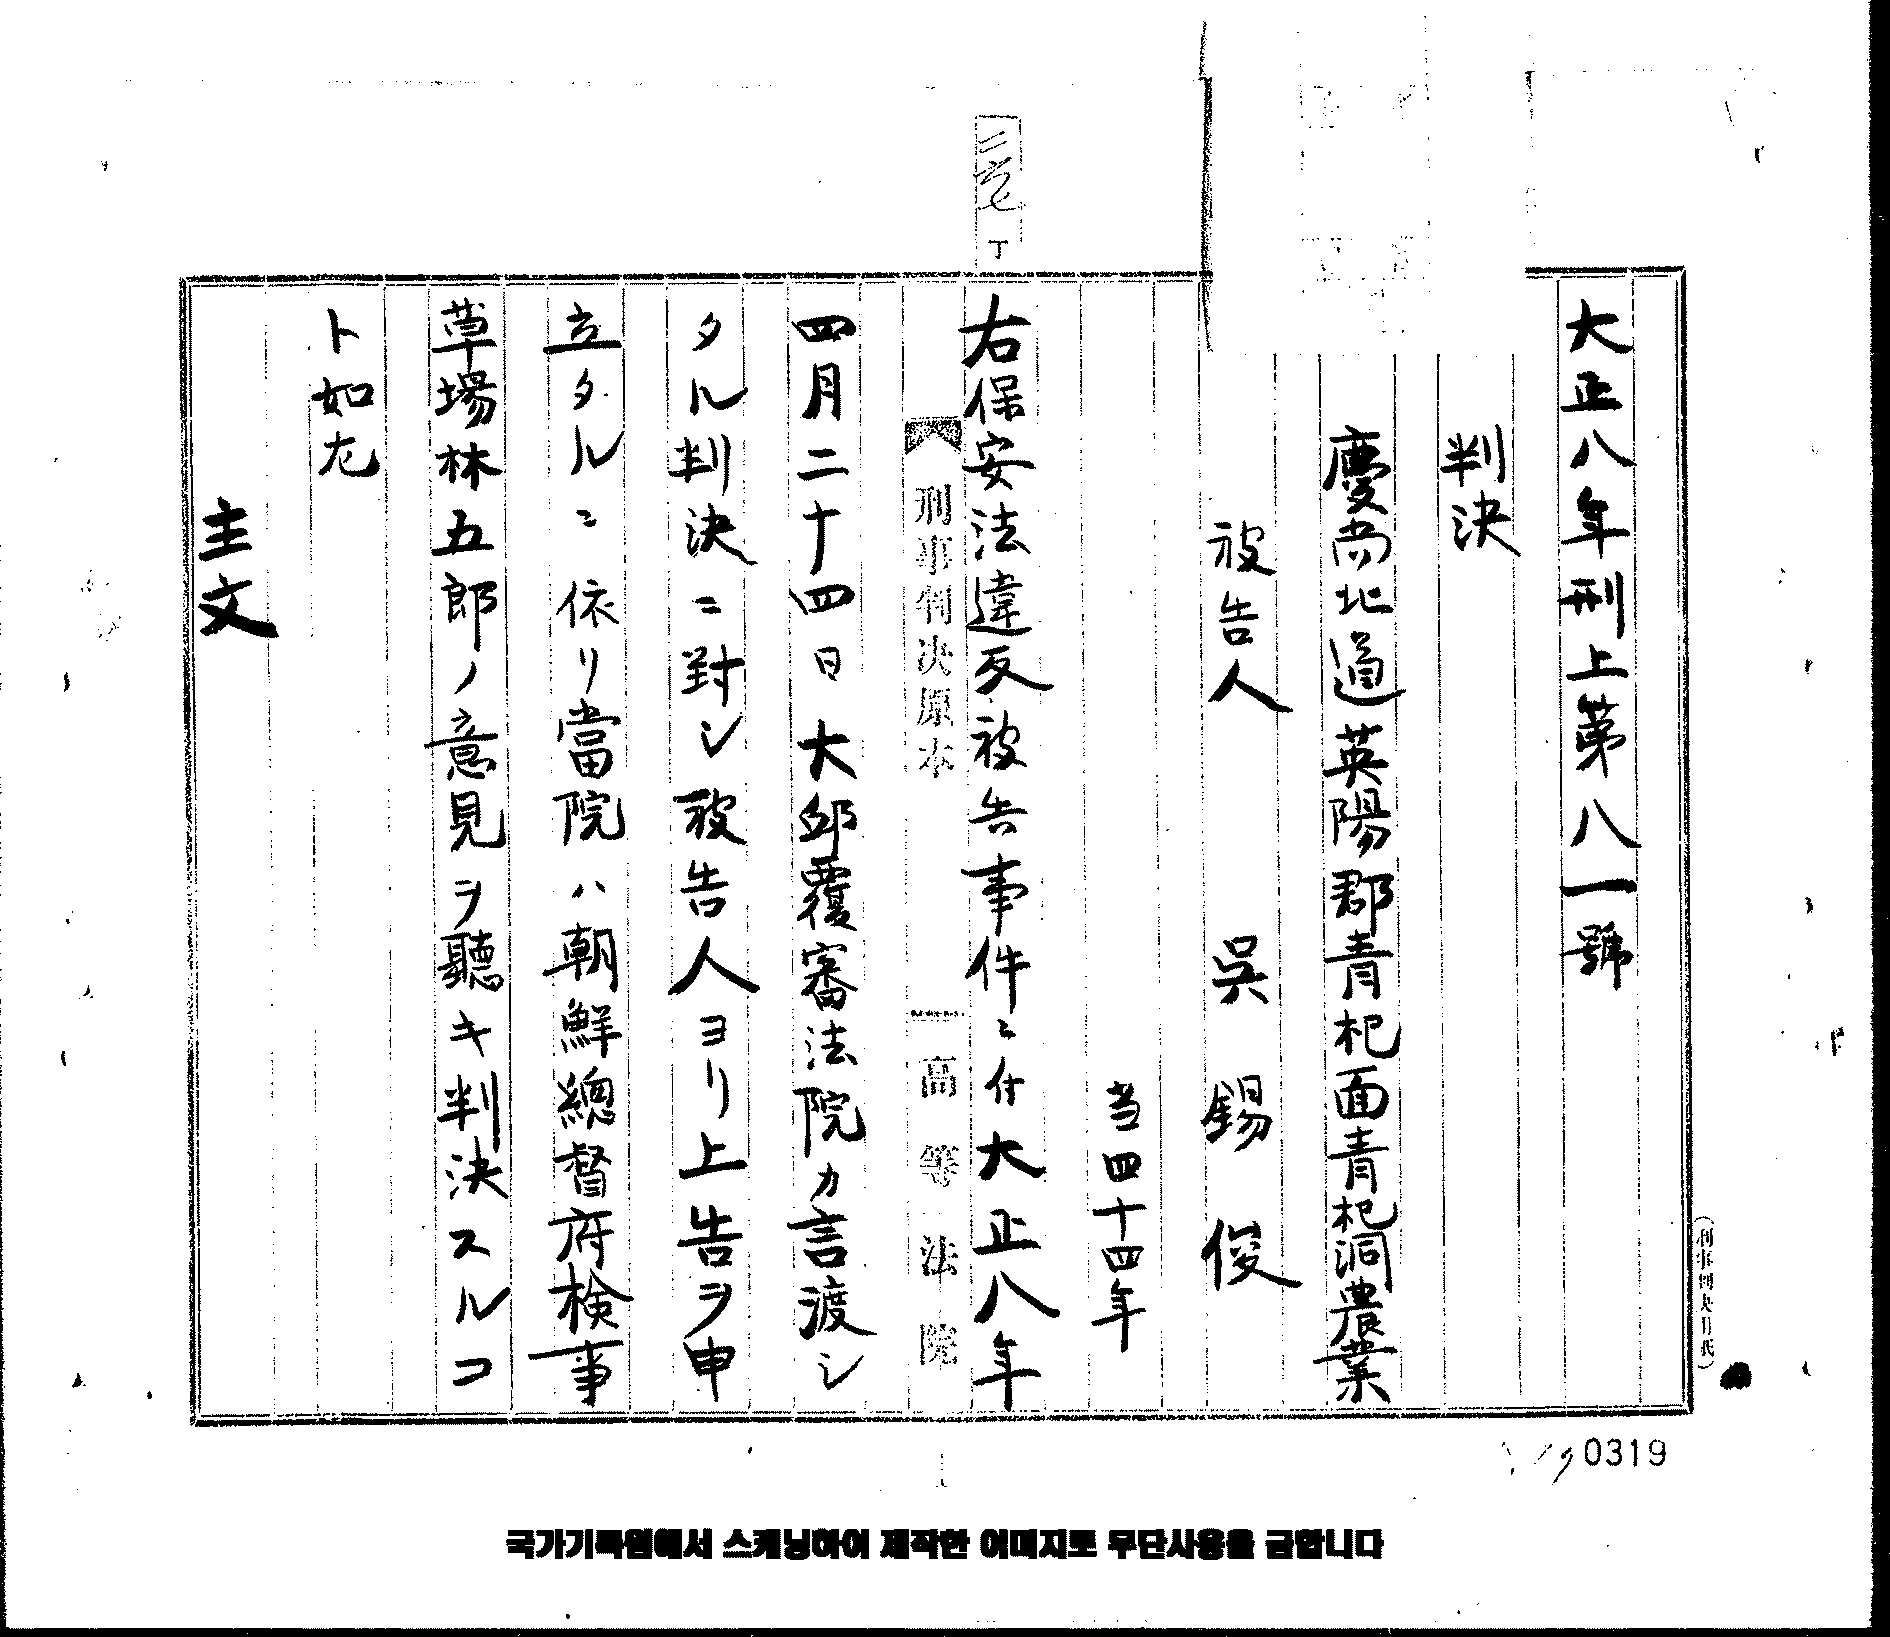 大正八年刑上第八一號
判決
慶尚北道英陽郡青杞面青杞洞農業
被告人 吳錫俊
当四十四年
右保安法違反被告事件ニ付大正八年
刑事判決原本
高等法院
四月二十四日大邱覆審法院カ言渡シ
タル判決ニ對シ被告人ヨリ上告ヲ申
立タルニ依リ當院ハ朝鮮總督府検事
草場林五郎ノ意見ヲ聽キ判決スルコ
ト如左
主文
0319
국가기록원에서 스캐닝하여 제작한 이미지로 무단사용을 금합니다